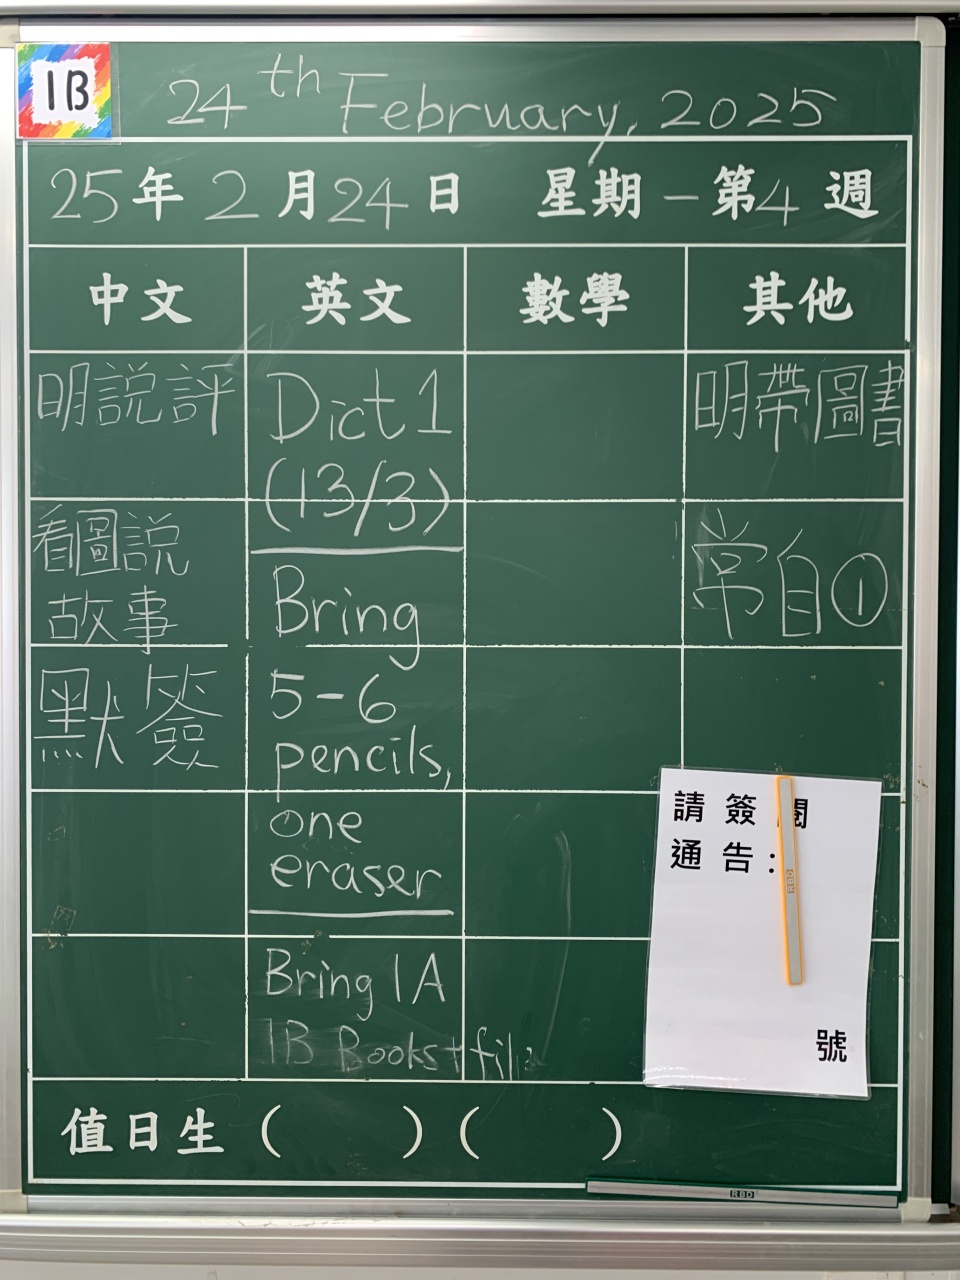 1B
24th February, 2025
25年2月24日 星期一第4週
中文 英文 數學 其他
明説評
看圖説
故事
默簽
Dict 1
(13/3)
Bring
5-6
pencils,
one
eraser
Bring 1A
1B Books+file
明帶圖書
常自①
請簽閱
通告:
號
值日生( )( )
RBD